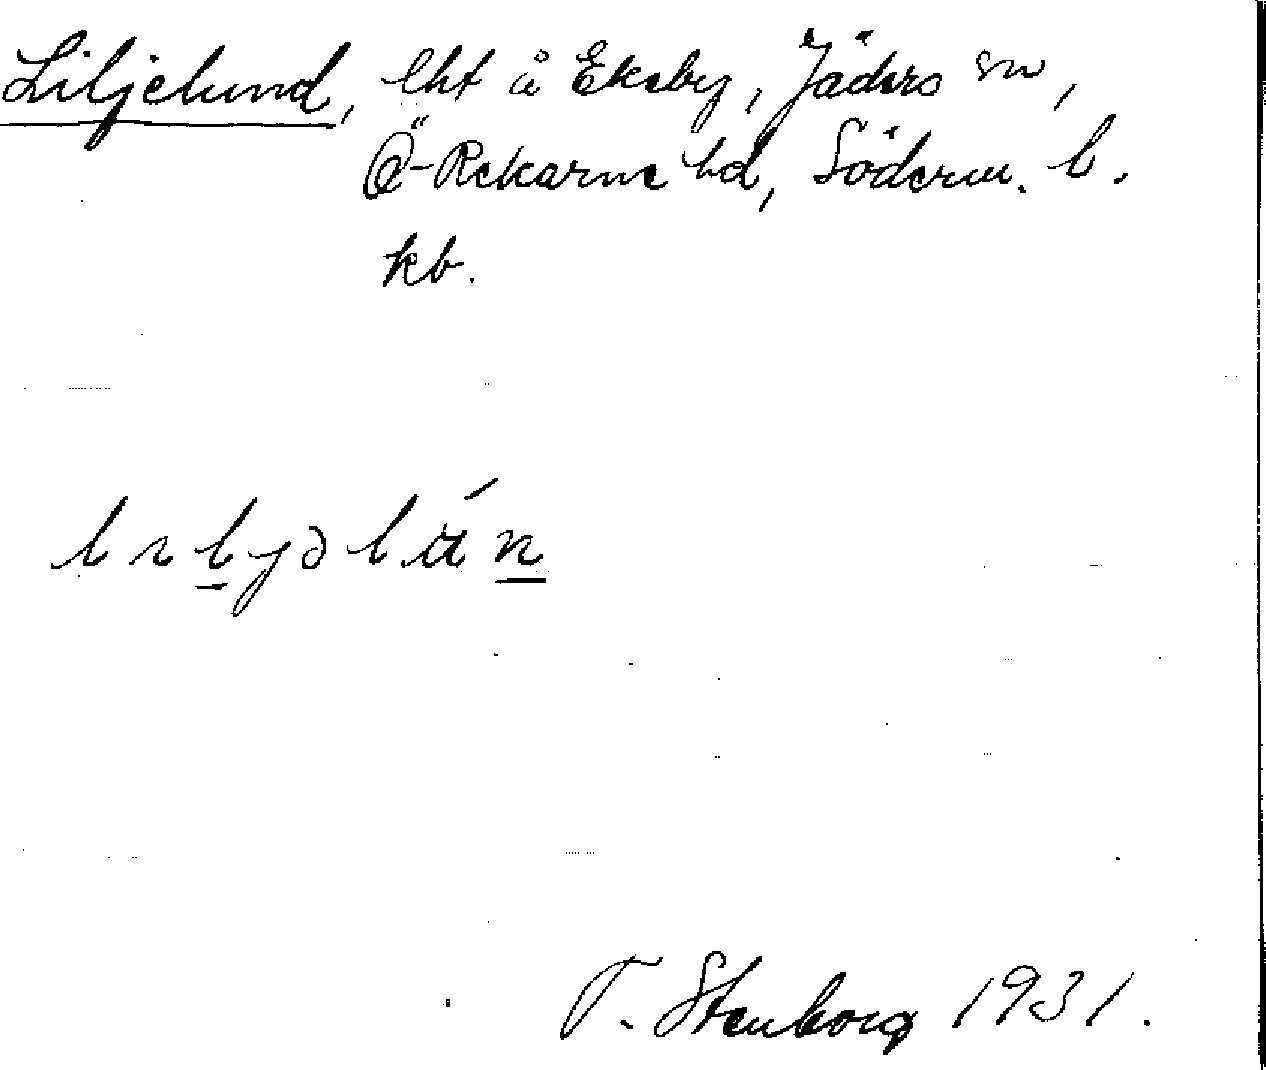 Liljelund, lht å Eksby, Jäders sn,
Ö-Rekarne hd, Söderm. l.
kb.
T. Stenborg 1931.